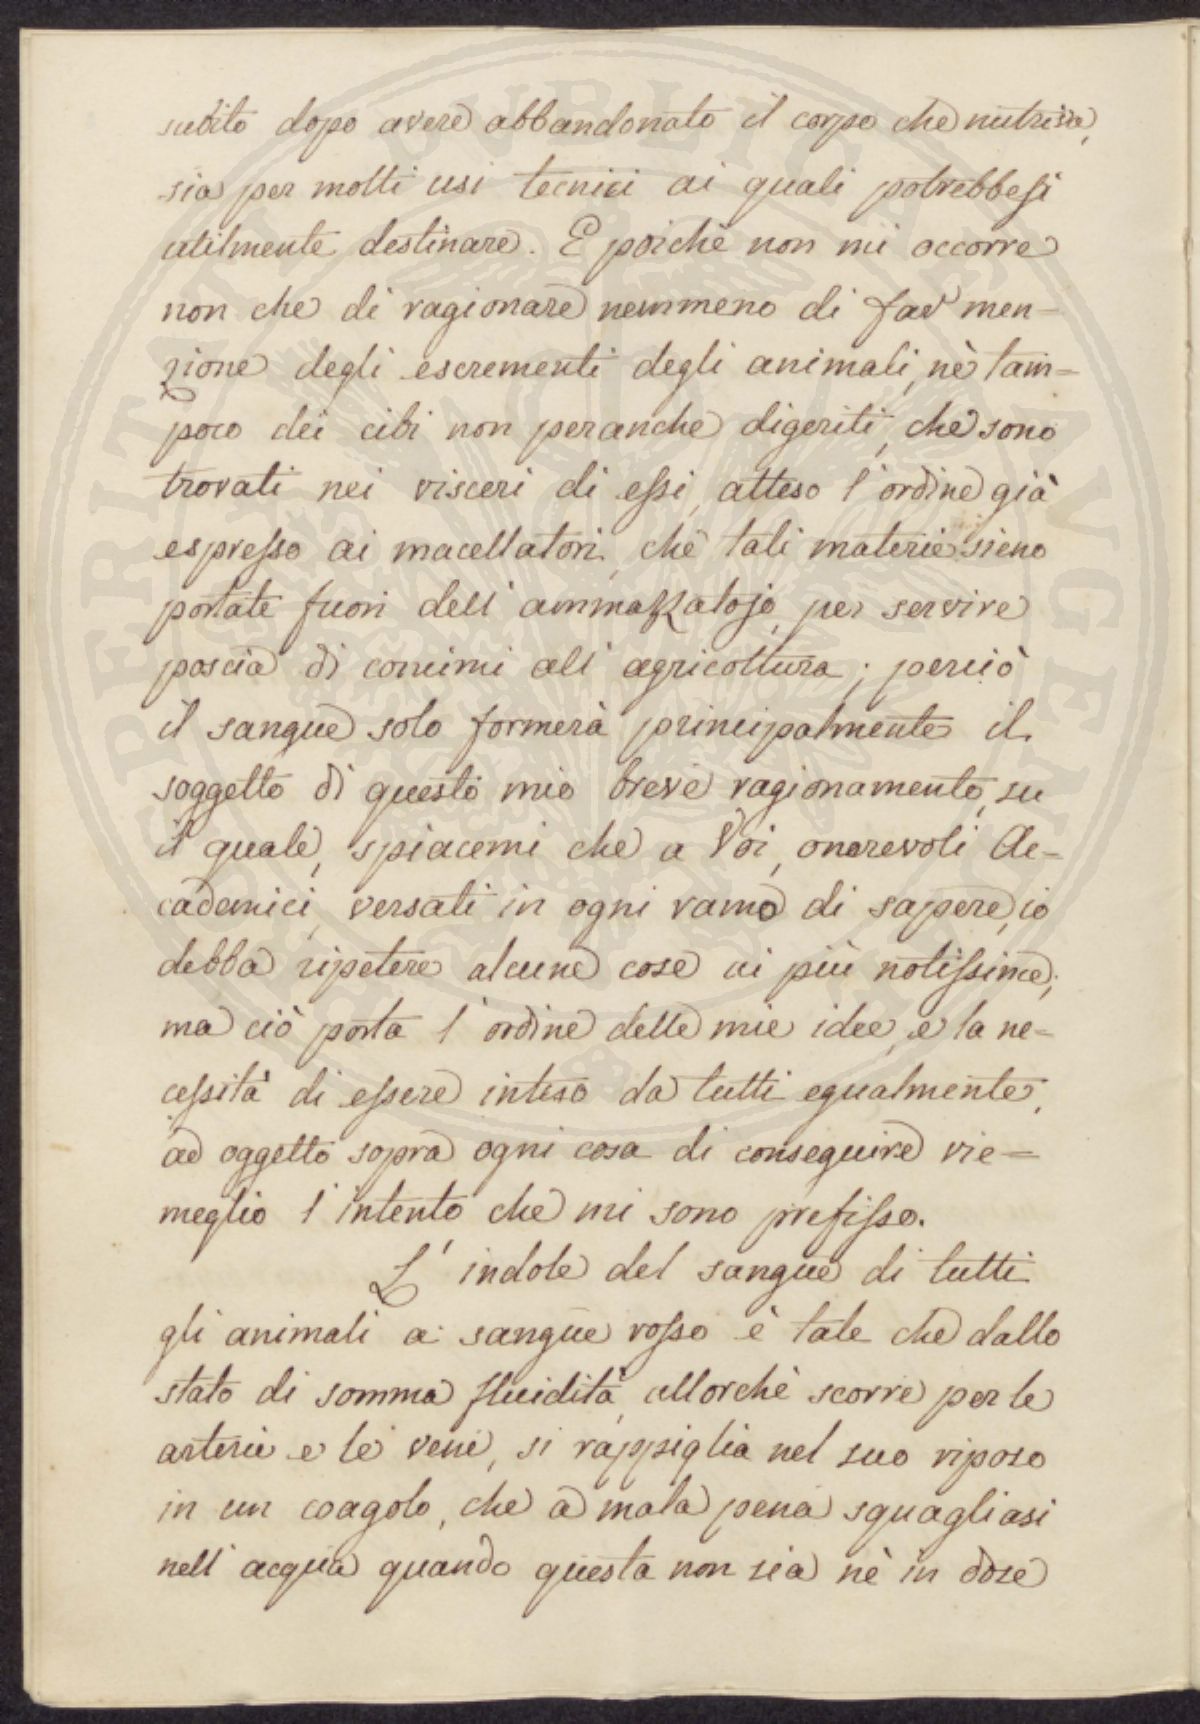 subito dopo avere abbandonato il corpo che nutriva,
sia per molti usi tecnici ai quali potrebbesi
utilmente destinare. E poichè non mi occorre
non che di ragionare nemmeno di far men-
zione degli escrementi degli animali, nè tam=
poco dei cibi non peranche digeriti, che sono
trovati nei visceri di essi, atteso l'ordine già
espresso ai macellatori, che tali materie sieno
portate fuori dell'ammazzatojo, per servire
poscia di concimi all'agricoltura; perciò
il sangue solo formerà principalmente il
soggetto di questo mio breve ragionamento, su
il quale, spiacemi che a Voi, onorevoli Ac-
cademici, versati in ogni ramo di sapere, io
debba ripetere alcune cose ai più notissime;
ma ciò porta l'ordine delle mie idee, e la ne-
cessità di essere inteso da tutti egualmente,
ad oggetto sopra ogni cosa di conseguire vie=
meglio l'intento che mi sono prefisso.
L'indole del sangue di tutti
gli animali a sangue rosso è tale che dallo
stato di somma fluidità, allorchè scorre per le
arterie e le vene, si rappiglia nel suo riposo
in un coagolo, che a mala pena squagliasi
nell'acqua quando questa non sia nè in dose
SPERITAT PUBLICA AUGE